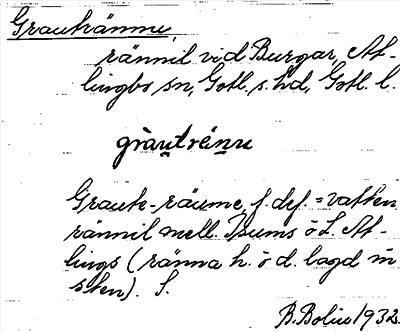 Grautrännu,
rännil vid Burgar, At-
lingbo sn, Gotl. s. hd, Gotl. l.
gràu̯trénu
Grauk-räume, f. def. = vatten
rännil mell. Isums ö L. At-
lings (ränna h. ö d. lagd m
sten). S.
B. Bolin 1932.